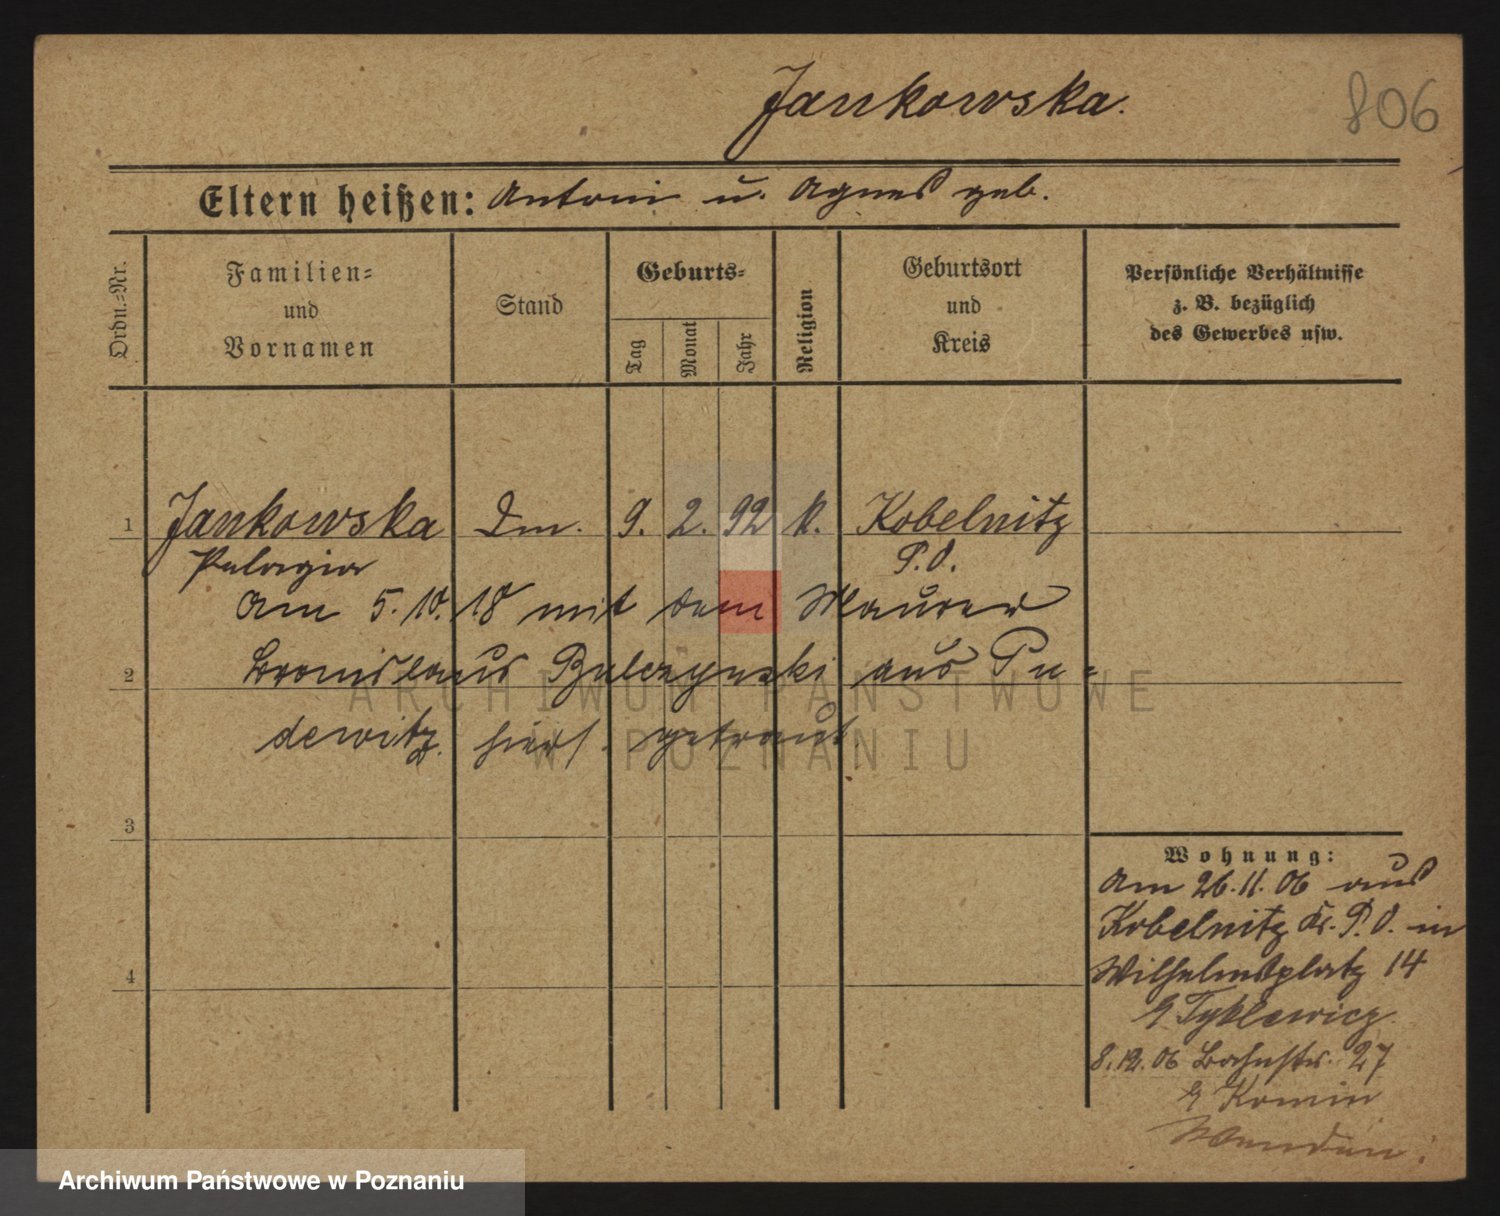 Jankowska.
806
Eltern heißen: Antoni u. Agnes geb.
Ordn.-Nr.
Familien-
und
Vornamen
Stand
Geburts-
Tag
Monat
Jahr
Religion
Geburtsort
und
Kreis
Persönliche Verhältnisse
z. B. bezüglich
des Gewerbes usw.
1 Jankowska Dm. 9. 2. 92 k. Kobelnitz
Pelagia P.O.
am 5. 10. 18 mit dem Maurer
2 Bronislaus aus Pu-
dewitz hiers. getraut
3
Wohnung:
am 26.11.06 aus
Kobelnitz Kr. P.O. in
Wilhelmsplatz 14
4
8.12.06 Bahnstr. 27
ARCHIWUM PAŃSTWOWE
W POZNANIU
Archiwum Państwowe w Poznaniu